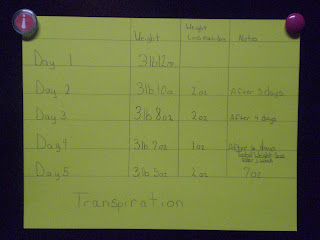 Weight Weight Notes
Loss
Day 1 3lb12oz
Day 2 3lb10oz 2oz After days
Day 3 3lb 8oz 2oz After 4 days
Day 4 3lb 7oz 1oz After days
Total Weight loss
Day 5 3lb 5oz 2oz 7oz
Transpiration